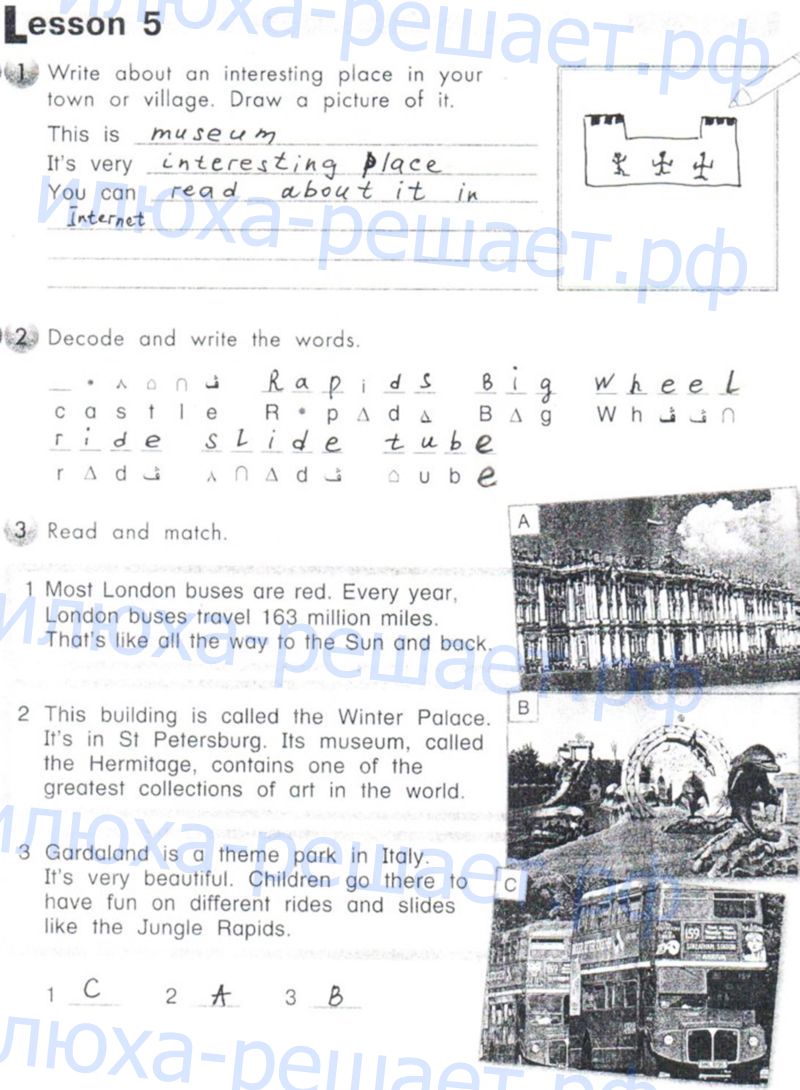 Lesson 5
1 Write about an interesting place in your
town or village. Draw a picture of it.
This is museum
It's very interesting place
You can read about it in
Internet
2 Decode and write the words.
R a p i d s B i g W h e e l
c a s t l e R • p Δ d B Δ g W h
r i d e s l i d e t u b e
r Δ d Δ d u b e
3 Read and match.
1 Most London buses are red. Every year,
London buses travel 163 million miles.
That's like all the way to the Sun and back.
2 This building is called the Winter Palace.
It's in St Petersburg. Its museum, called
the Hermitage, contains one of the
greatest collections of art in the world.
3 Gardaland is a theme park in Italy.
It's very beautiful. Children go there to
have fun on different rides and slides
like the Jungle Rapids.
A
B
C
159
STREATHAM STATION
1 C 2 A 3 B
илюха-решает.рф
илюха-решает.рф
илюха-решает.рф
илюха-решает.рф
илюха-решает.рф